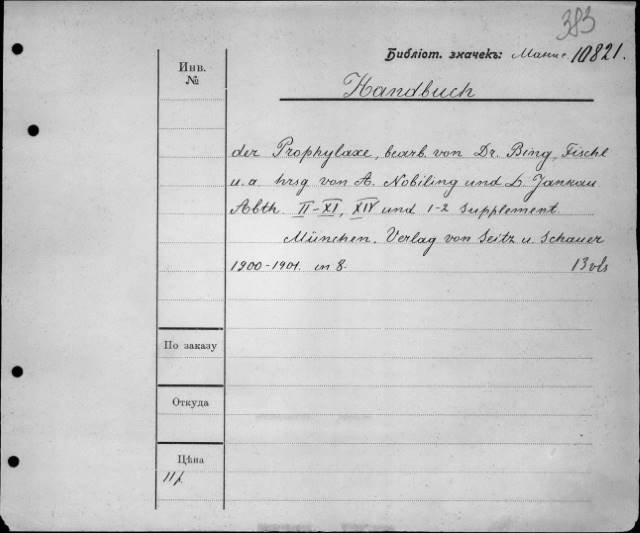 383
Библіот. значекъ: Манис 10821.
Инв.
№
Handbuch
der Prophylaxe, bearb. von Dr. Bing, Fischl
u. a hrsg von A. Nobiling und L. Jankau
Abth. II-XI, XIV und 1-2 Supplement.
München. Verlag von Seitz u. Schauer
1900-1901. in 8. 13 vls
По заказу
Откуда
Цѣна